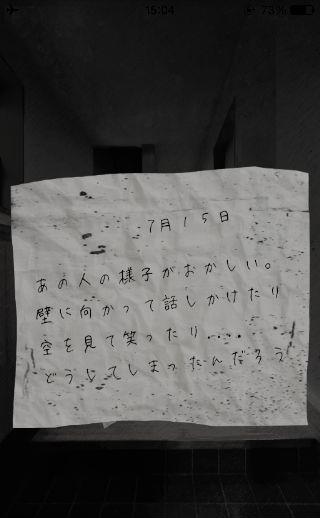 15:04
73%
7月15日
あの人の様子がおかしい。
壁に向かって話しかけたり
空を見て笑ったり....
どうしてしまったんだろう